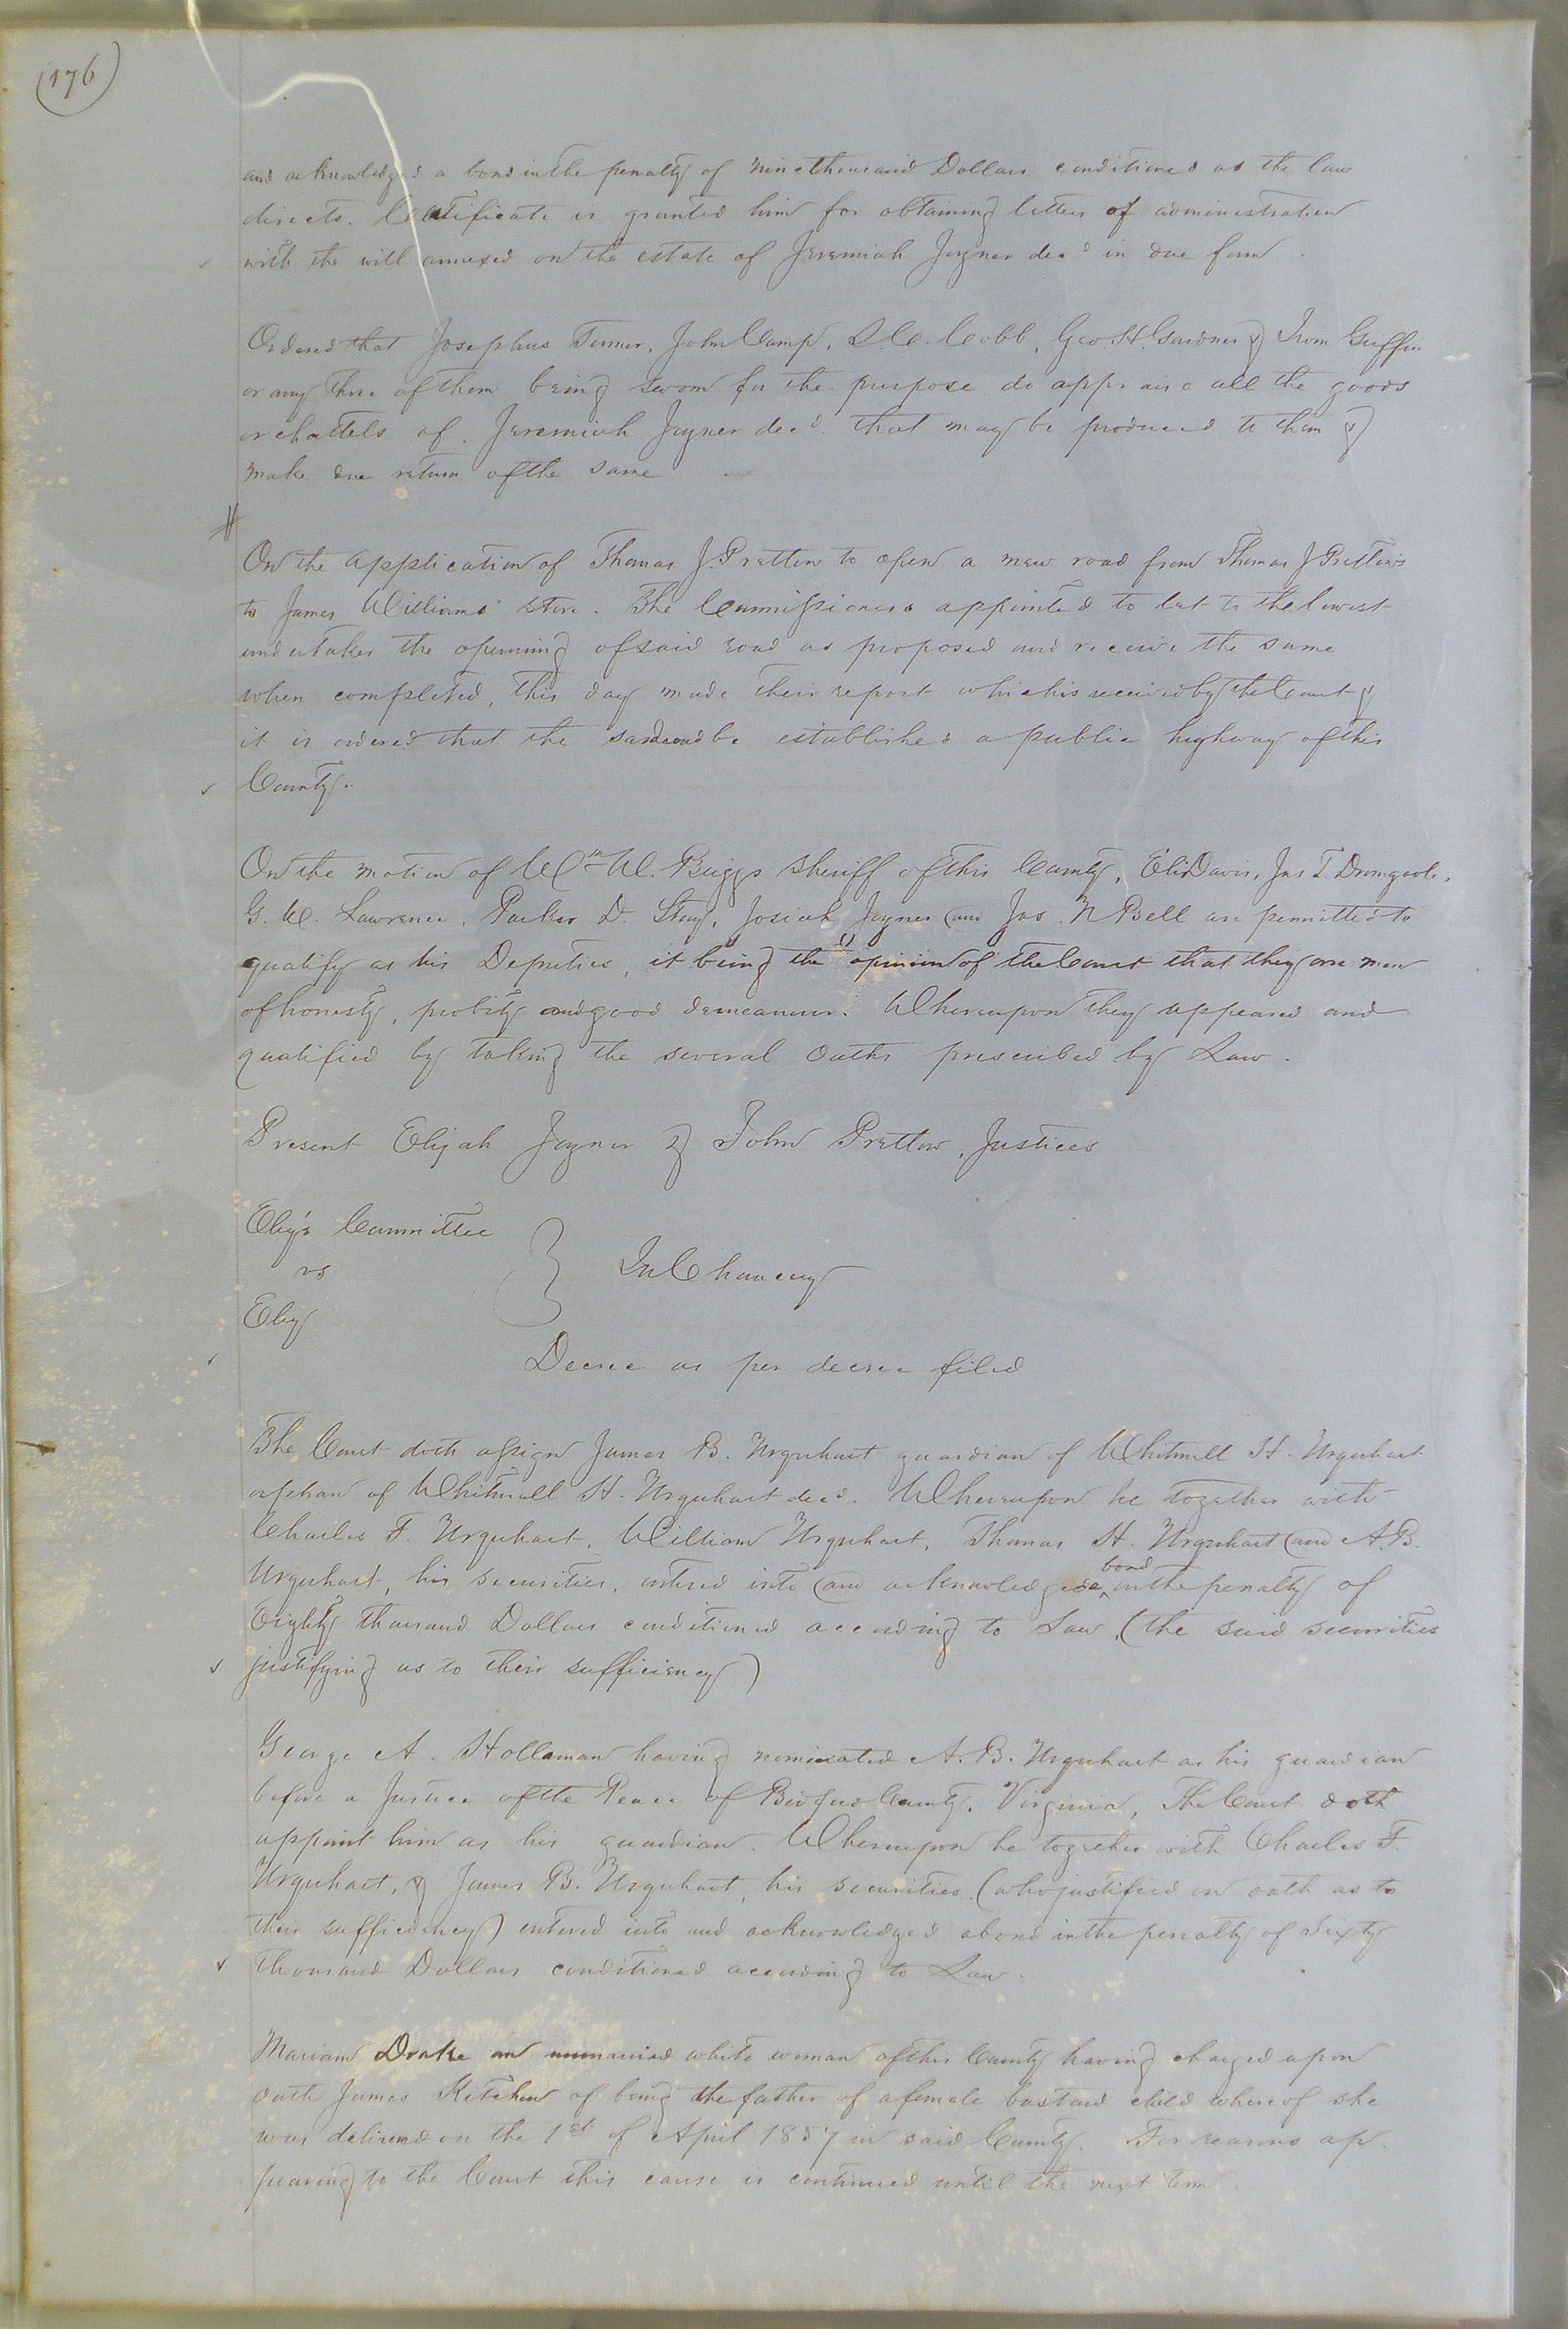 (176)
and acknowledged a bond in the penalty of Nine thousand Dollars conditioned as the law
directs. Certificate is granted him for obtaining letters of administration
with the will annexed on the estate of Jeremiah Joyner decd in due form.
Ordered that Josephus Turner, John Camp, L. C. Cobb, Geo. H. Gardner & Griffin
or any three of them being sworn for the purpose do appraise all the goods
or chattels of Jeremiah Joyner decd. that may be produced to them &
make due return of the same
#
On the application of Thomas J. Pretlow to open a new road from Thomas J Pretlow's
to James Williams' store. The Commissioners appointed to let to the lowest
undertaker the opening of said road as proposed and receive the same
when completed, this day made their report which is received by the Court &
it is ordered that the said road be established a public highway of this
County.
On the motion of Wm W. Briggs Sheriff of this County, Eli Davis, Jas T. Dromgoole,
G. W. Lawrence, Parker D. Story, Josiah Joyner and Jas. N Bell are permitted to
qualify as his Deputies, it being the opinion of the Court that they are men
of honesty, probity and good demeanour. Whereupon they appeared and
qualified by taking the several oaths prescribed by Law.
Present Elijah Joyner & John Pretlow, Justices
Eley's Committee
vs
In Chancery
Eley
Decree as per decree filed
The Court doth assign James B. Urquhart guardian of Whitmell H. Urquhart
orphan of Whitmell H. Urquhart decd. Whereupon he together with
Charles F. Urquhart, William Urquhart, Thomas H. Urquhart and A. B.
Urquhart, his securities, entered into and acknowledged a bond in the penalty of
Eighty thousand Dollars conditioned according to Law, (the said securities
justifying as to their sufficiency)
George A. Holleman having nominated A. B. Urquhart as his guardian
before a Justice of the Peace of Bedford County, Virginia, The Court doth
appoint him as his guardian. Whereupon he together with Charles F.
Urquhart, & James B. Urquhart, his securities (who justified on oath as to
their sufficiency) entered into and acknowledged a bond in the penalty of Sixty
thousand Dollars conditioned according to Law.
Mariam Drake an unmarried white woman of this County having charged upon
oath James Kitchen of being the father of a female bastard child whereof she
was delivered on the 1st of April 1857 in said County. For reasons ap-
pearing to the Court this cause is continued until the next term.